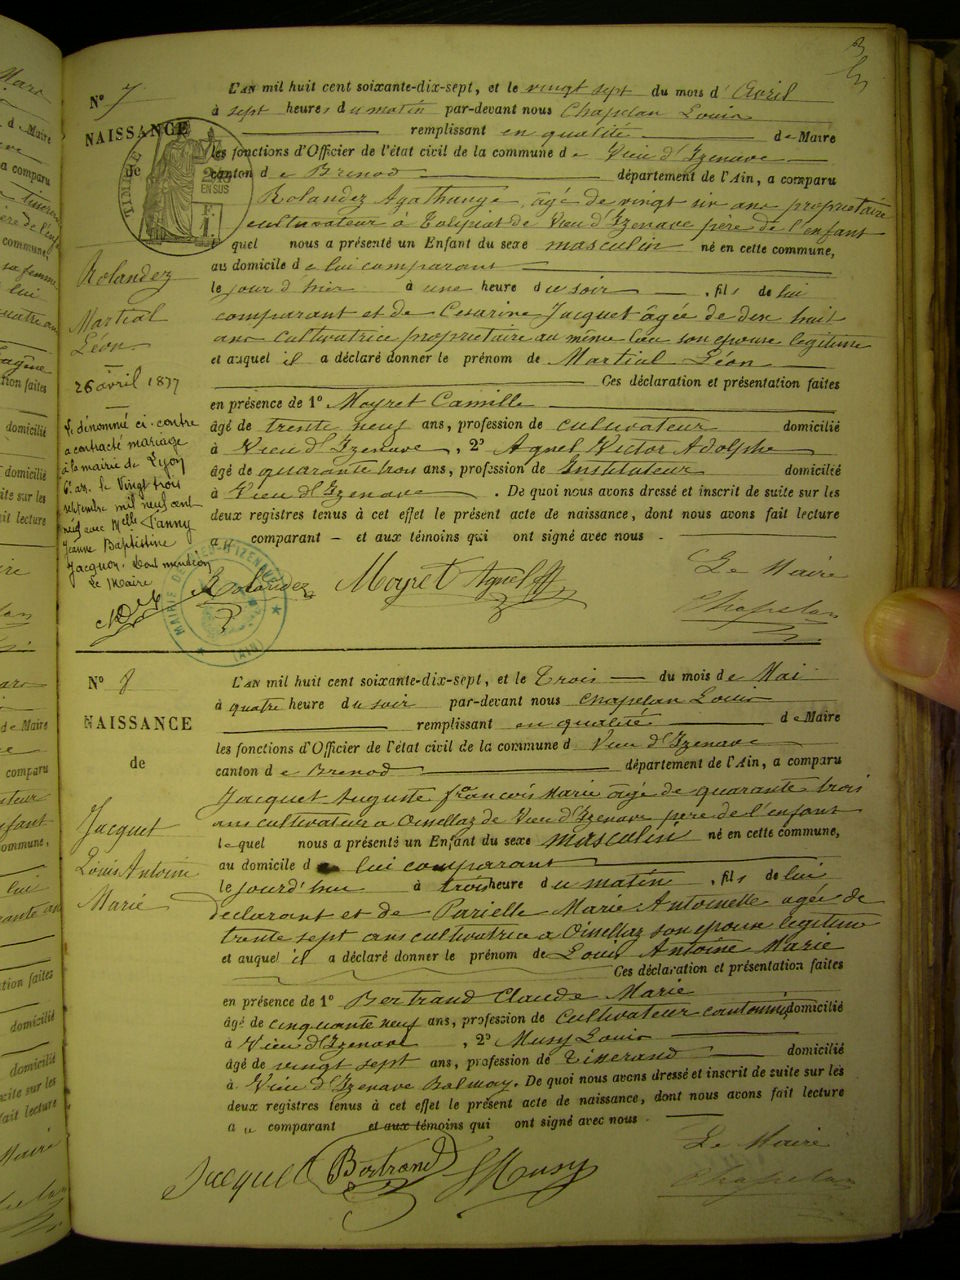 N° 7
NAISSANCE
de
Rolandez
Martial
Léon
26 avril 1877
Le dénommé ci-contre
a contracté mariage
à la mairie de Lyon
6e ar. le vingt trois
septembre mil neuf cent
neuf avec Melle Fanny
Jeanne Baptistine
Jacquon. Dont mention
Le Maire
TIMBRE
EN SUS
L'AN mil huit cent soixante-dix-sept, et le vingt sept du mois d'Avril
à sept heures du matin par-devant nous Chapelan Louis
remplissant en qualité de Maire
les fonctions d'Officier de l'état civil de la commune de Vieu d'Izenave
canton de Brenod département de l'Ain, a comparu
Rolandez Agathange, âgé de vingt six ans propriétaire
cultivateur à de Vieu d'Izenave père de l'enfant
quel nous a présenté un Enfant du sexe masculin né en cette commune,
au domicile de lui comparant
le jour d'hier à une heure du soir, fils de lui
comparant et de Césarine Jacquet âgée de dix huit
ans cultivatrice propriétaire au même lieu son épouse légitime
et auquel il a déclaré donner le prénom de Martial Léon
Ces déclaration et présentation faites
en présence de 1° Moyret Camille
âgé de trente neuf ans, profession de cultivateur domicilié
à Vieu d'Izenave, 2° Agnel Victor Adolphe
âgé de quarante trois ans, profession de Instituteur domicilié
à Vieu d'Izenave. De quoi nous avons dressé et inscrit de suite sur les
deux registres tenus à cet effet le présent acte de naissance, dont nous avons fait lecture
au comparant – et aux témoins qui ont signé avec nous.
Le Maire
Rolandez Moyret Agnel
Chapelan
MAIRIE DE VIEU-D'IZENAVE (AIN)
N° 8
NAISSANCE
de
Jacquet
Louis Antoine
Marie
L'AN mil huit cent soixante-dix-sept, et le Trois du mois de Mai
à quatre heure du soir par-devant nous Chapelan Louis
remplissant en qualité de Maire
les fonctions d'Officier de l'état civil de la commune d Vieu d'Izenave
canton de Brenod département de l'Ain, a comparu
Jacquet Auguste françois Marie âgé de quarante trois
ans cultivateur a Oisellaz de Vieu d'Izenave père de l'enfant
lequel nous a présenté un Enfant du sexe masculin né en cette commune,
au domicile d lui comparant
le jourd'hui à trois heure du matin, fils de lui
declarant et de Parielle Marie Antoinette agée de
trente sept ans cultivatrice a Oisellaz son épouse legitime
et auquel il a déclaré donner le prénom de Louis Antoine Marie
Ces déclaration et présentation faites
en présence de 1° Bertrand Claude Marie
âgé de cinquante neuf ans, profession de Cultivateur cantonnier domicilié
à Vieu d'Izenave, 2° Musy Louis
âgé de vingt sept ans, profession de Tisserand domicilié
à Vieu d'Izenave Balmay. De quoi nous avons dressé et inscrit de suite sur les
deux registres tenus à cet effet le présent acte de naissance, dont nous avons fait lecture
au comparant et aux témoins qui ont signé avec nous.
Le Maire
Jacquet Bertrand Musy
Chapelan